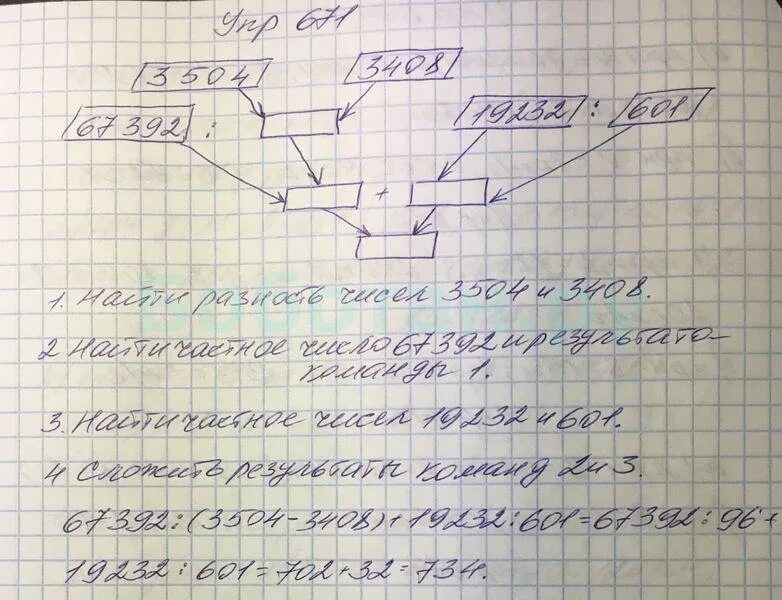 Упр 671
3504 3408
67392 : 19232 : 601
+
1. Найти разность чисел 3504 и 3408.
2 Найти частное число 67392 и результато-
команды 1.
3. Найти частное чисел 19232 и 601.
4 Сложить результаты команд 2 и 3.
67392:(3504-3408)+19232:601=67392:96+
19232:601=702+32=734.